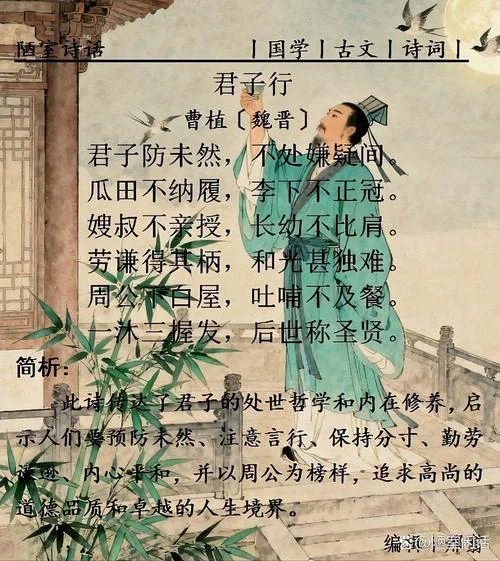 陋室诗话 丨国学丨古文丨诗词丨
君子行
曹植〔魏晋〕
君子防未然，不处嫌疑间。
瓜田不纳履，李下不正冠。
嫂叔不亲授，长幼不比肩。
劳谦得其柄，和光甚独难。
周公下白屋，吐哺不及餐。
一沐三握发，后世称圣贤。
简析：
此诗传达了君子的处世哲学和内在修养，启
示人们要预防未然、注意言行、保持分寸、勤劳
谦逊、内心平和，并以周公为榜样，追求高尚的
道德品质和卓越的人生境界。
编辑
@陋室闲话